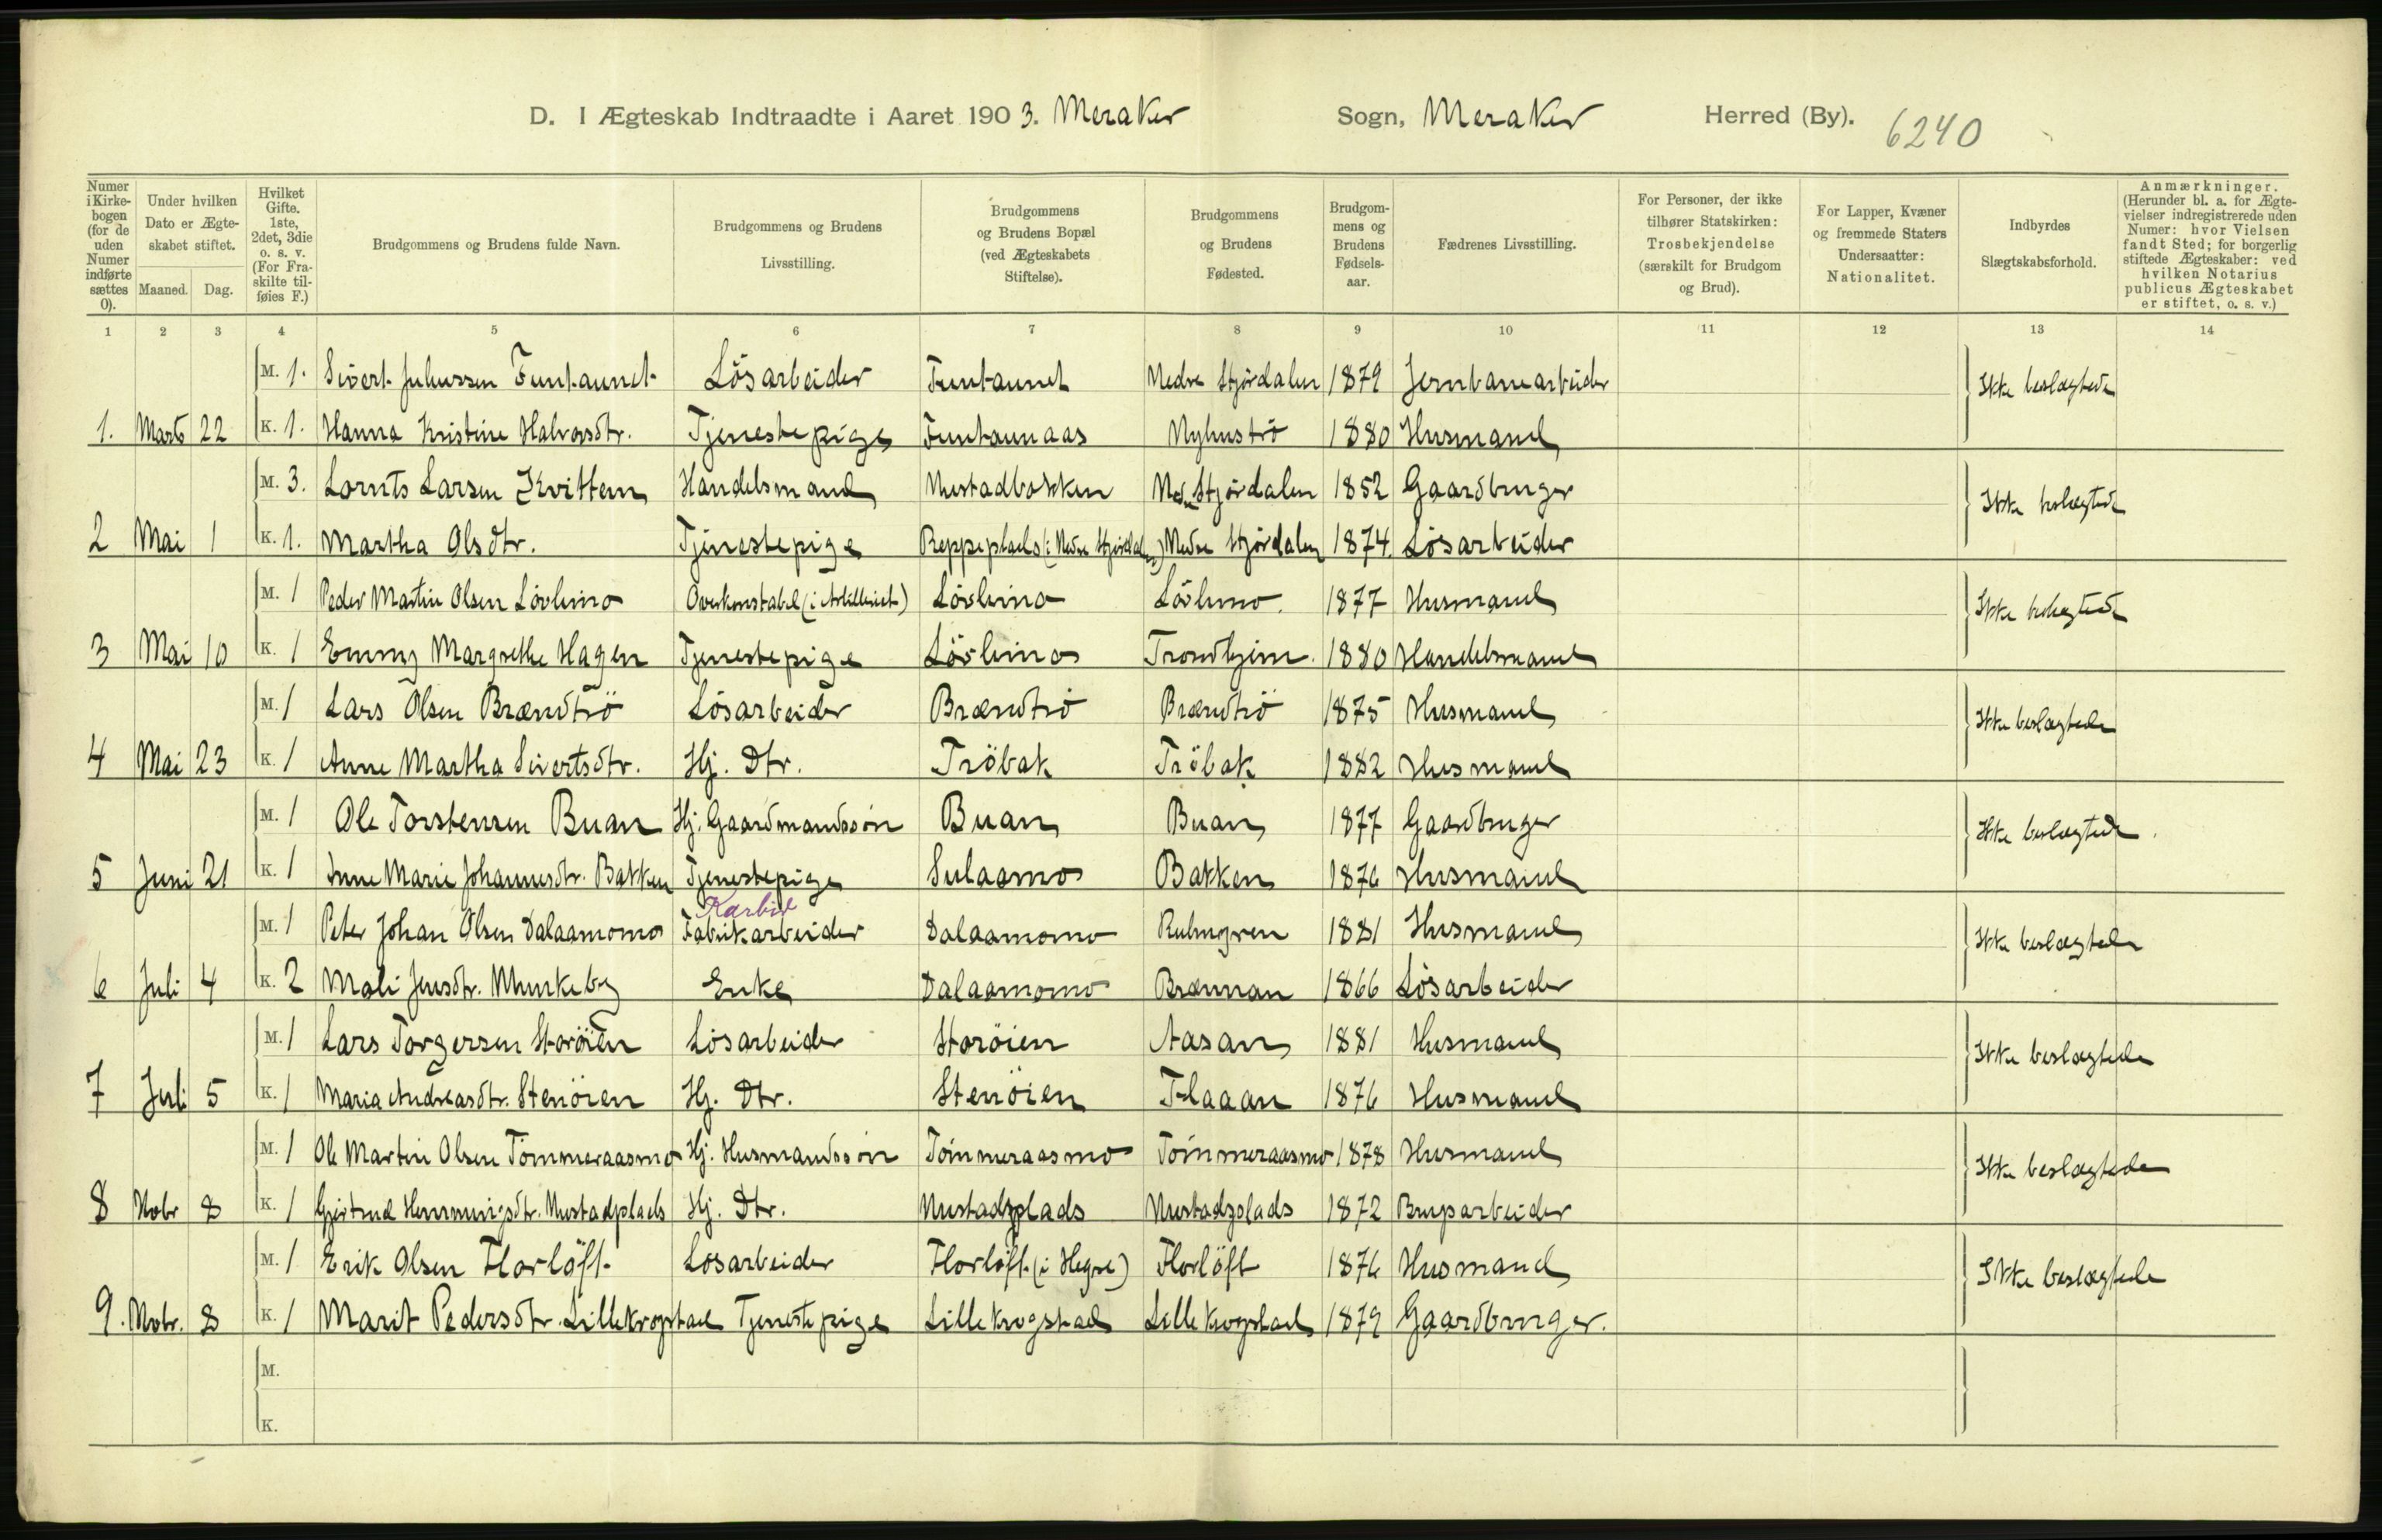 D. I Ægteskab Indtraadte i Aaret 1903. Meraker Sogn, Meraker Herred (By). 6240
Numer i Kirkebogen (for de uden Numer indførte sættes 0).
Under hvilken Dato er Ægteskabet stiftet.
Maaned. Dag.
Hvilket Gifte. 1ste, 2det, 3die o. s. v. (For Fraskilte tilføies F.)
Brudgommens og Brudens fulde Navn.
Brudgommens og Brudens Livsstilling.
Brudgommens og Brudens Bopæl (ved Ægteskabets Stiftelse).
Brudgommens og Brudens Fødested.
Brudgommens og Brudens Fødselsaar.
Fædrenes Livsstilling.
For Personer, der ikke tilhører Statskirken: Trosbekjendelse (særskilt for Brudgom og Brud).
For Lapper, Kvæner og fremmede Staters Undersaatter: Nationalitet.
Indbyrdes Slægtskabsforhold.
Anmærkninger. (Herunder bl. a. for Ægtevielser indregistrerede uden Numer: hvor Vielsen fandt Sted; for borgerlig stiftede Ægteskaber: ved hvilken Notarius publicus Ægteskabet er stiftet, o. s. v.)
1 2 3 4 5 6 7 8 9 10 11 12 13 14
M. 1. Sivert Juliussen Funtaunet Lösarbeider Funtaunet Nedre Stjördalen 1879 Jernbanearbeider Ikke beslægtede
1. Marts 22 K. 1. Hanna Kristine Halvorsdtr. Tjenestepige Funtaunaas Nyhuströ 1880 Husmand
M. 3. Lornts Larsen Kvittem Handelsmand Mestadbakken Ned. Stjördalen 1852 Gaardbruger Ikke beslægtede
2 Mai 1 K. 1. Martha Olsdtr. Tjenestepige Reppeplads (: Nedre Stjördalen) Nedre Stjördalen 1874 Lösarbeider
M. 1 Peder Martin Olsen Lövlimo Overkonstabel (i Artilleriet) Lövlimo Lövlimo. 1877 Husmand Ikke beslægtede
3 Mai 10 K. 1 Emmy Margrethe Hagen Tjenestepige Lövlimo Trondhjem. 1880 Handelsmand
M. 1 Lars Olsen Brændtrö Lösarbeider Brændtrö Brændtrö 1875 Husmand Ikke beslægtede
4 Mai 23 K. 1 Anne Martha Sivertsdtr. Hj. Dtr. Tröbak Tröbak 1882 Husmand
M. 1 Ole Torstensen Buan Hj. Gaardmandssön Buan Buan 1877 Gaardbruger Ikke beslægtede
5 Juni 21 K. 1 Anne Marie Johannesdtr. Bakken Tjenestepige Sulaamo Bakken 1876 Husmand
Karbid
M. 1 Peter Johan Olsen Dalaamomo Fabrikarbeider Dalaamomo 1881 Husmand Ikke beslægtede
6 Juli 4 K. 2 Mali Jensdtr. Munkeby Enke Dalaamomo Brænnan 1866 Lösarbeider
M. 1 Lars Torgersen Storöien Lösarbeider Storöien Aasan 1881 Husmand Ikke beslægtede
7 Juli 5 K. 1 Maria Andreasdtr. Stenöien Hj. Dtr. Stenöien Flaaan 1876 Husmand
M. 1 Ole Martin Olsen Tömmeraasmo Hj. Husmandssön Tömmeraasmo Tömmeraasmo 1878 Husmand Ikke beslægtede
8 Nobr 8 K. 1 Gjertrud Henningsdtr. Mustadplads Hj. Dtr. Mustadplads Mustadplads 1872 Brugsarbeider
M. 1 Erik Olsen Florlöft Lösarbeider Florlöft (i Hegre) Florlöft 1876 Husmand Ikke beslægtede
9. Nobr. 8 K. 1 Marit Pedersdtr. Lillekrogstad Tjenestepige Lillekrogstad Lillekrogstad 1879 Gaardbruger.
M.
K.